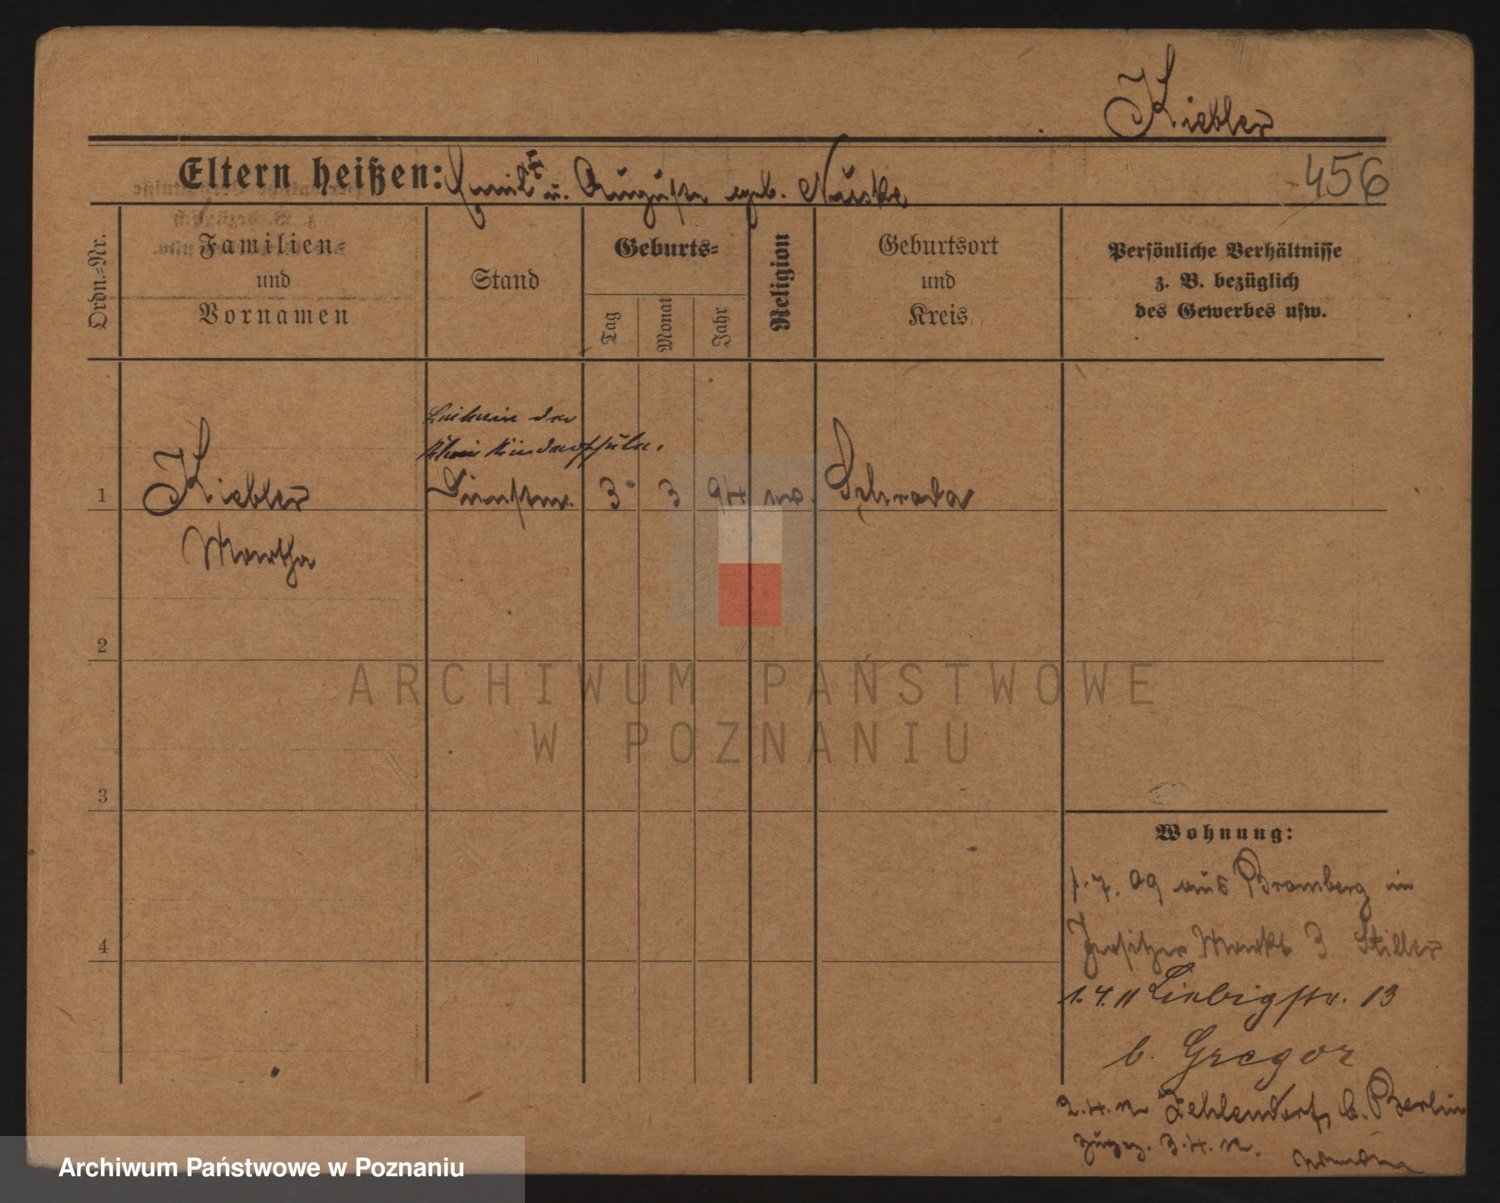 Kiebler
Eltern heißen: Emil u. Auguste geb.
456
Ordn.-Nr.
Familien-
und
Vornamen
Stand
Geburts-
Tag
Monat
Jahr
Religion
Geburtsort
und
Kreis
Persönliche Verhältnisse
z. B. bezüglich
des Gewerbes usw.
der
1 Kiebler 3 3 94 Schroda
Martha
2
3
4
Wohnung:
1.7.09 aus Bromberg in
Jersitzer Markt 3 Stiller
1.4.11 Liebigstr. 13
b. Gregor
Zehlendorf b. Berlin
zugez. 3.4.
ARCHIWUM PAŃSTWOWE
W POZNANIU
Archiwum Państwowe w Poznaniu